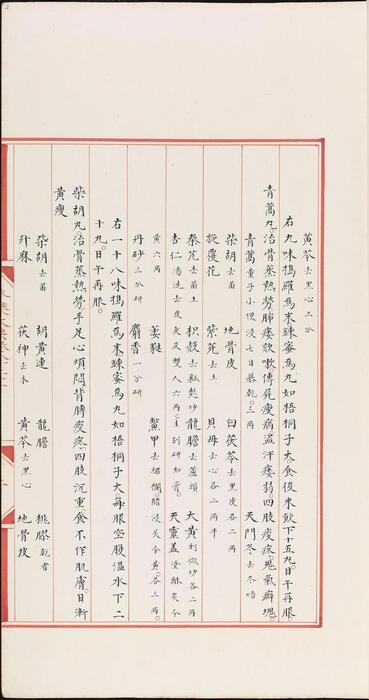 黃芩去黑心三分
右九味搗羅為末鍊蜜為丸如梧桐子大食後米飲下十五丸日午再服
青蒿丸治骨蒸熱勞肺痿欬嗽傳屍瘦病盜汗痿弱四肢痠疼鬼氣癖塊
青蒿童子小便浸七日暴乾三兩 天門冬去冬
柴胡去苗 地骨皮 白茯苓去黑皮各二兩
旋覆花 紫菀去土 貝母去心各二兩半
秦艽去苗土 枳殼去瓤麩炒 龍膽去蘆頭 大黃剉微炒各二兩
杏仁湯浸去皮尖及雙人六兩別研如膏 天靈蓋塗酥炙令
黃六兩 鱉甲去裙襴醋浸炙令黃各三兩
丹砂三分研 麝香一分研
右一十八味搗羅為末鍊蜜為丸如梧桐子大每服空腹溫水下二
十丸日午再服
柴胡丸治骨蒸熱勞手足心煩悶背膊痠疼四肢沉重食不作肌膚日漸
黃瘦
柴胡去苗 胡黃連 龍膽 桃膠乾者
升麻 茯神去木 黃芩去黑心 地骨皮